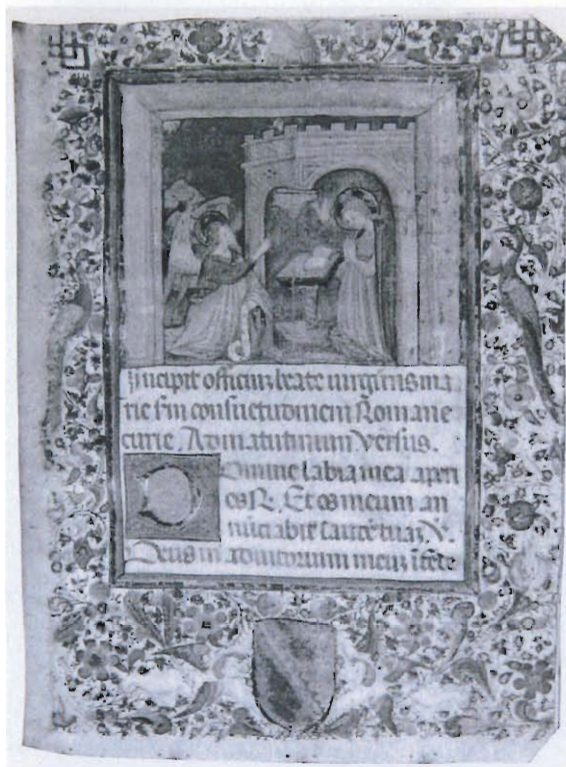 Incipit officiuz beate uirginis ma
rie sm consuetudinem Romane
curie. Ad matutinum Versus.
Domine labia mea aperi
es R. Et os meum an
nuciabit laudē tuaz V.
Deus in adiutorium meuz ītēde